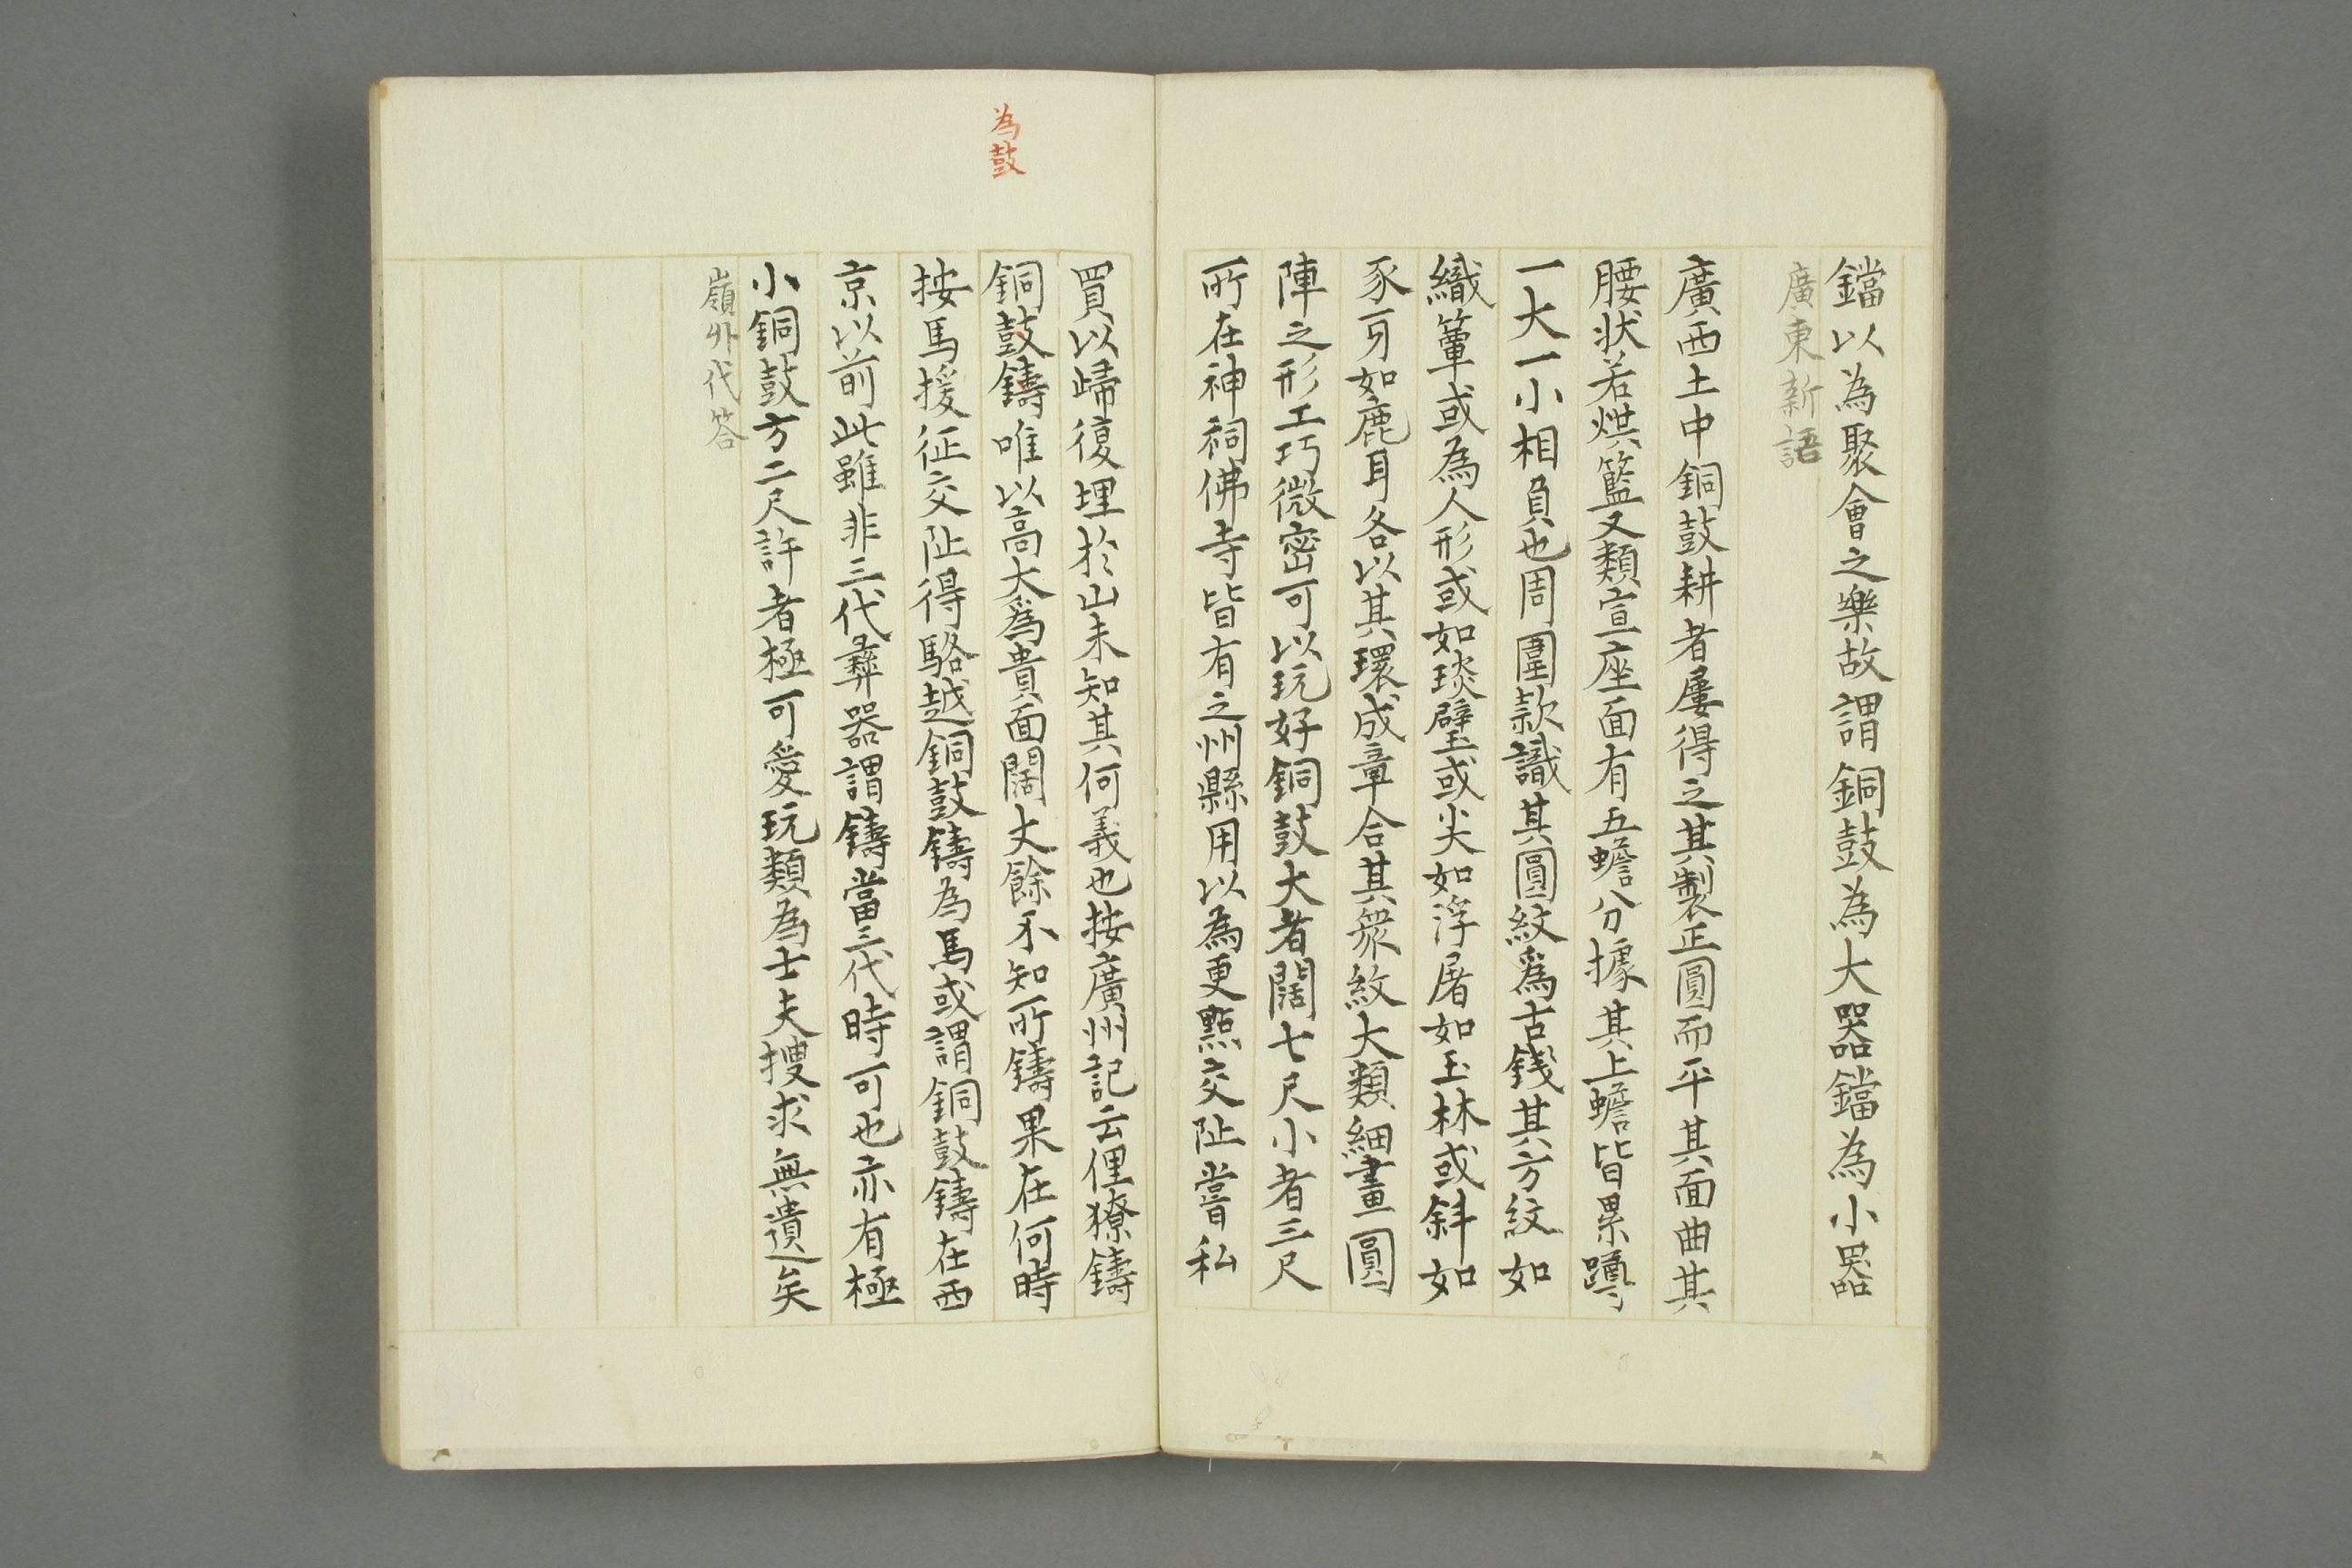 鐺以為聚會之樂故謂銅鼓為大器鐺為小器
廣東新語
廣西土中銅鼓耕者屢得之其製正圓而平其面曲其
腰状若烘籃又類宣座面有五蟾分據其上蟾皆累蹲
一大一小相負也周圍款識其圓紋爲古錢其方紋如
織簟或為人形或如琰璧或尖如浮屠如玉林或斜如
豕牙如鹿耳各以其環成章合其衆紋大類細畫圓
陣之形工巧微密可以玩好銅鼓大者闊七尺小者三尺
所在神祠佛寺皆有之州縣用以為更點交阯嘗私
買以歸復埋於山未知其何義也按廣州記云俚獠鑄
為鼓
銅鼓鑄唯以高大爲貴面闊丈餘不知所鑄果在何時
按馬援征交阯得駱越銅鼓鑄為馬或謂銅鼓鑄在西
京以前此雖非三代彝器謂鑄當三代時可也亦有極
小銅鼓方二尺許者極可愛玩類為士夫搜求無遺矣
嶺外代答